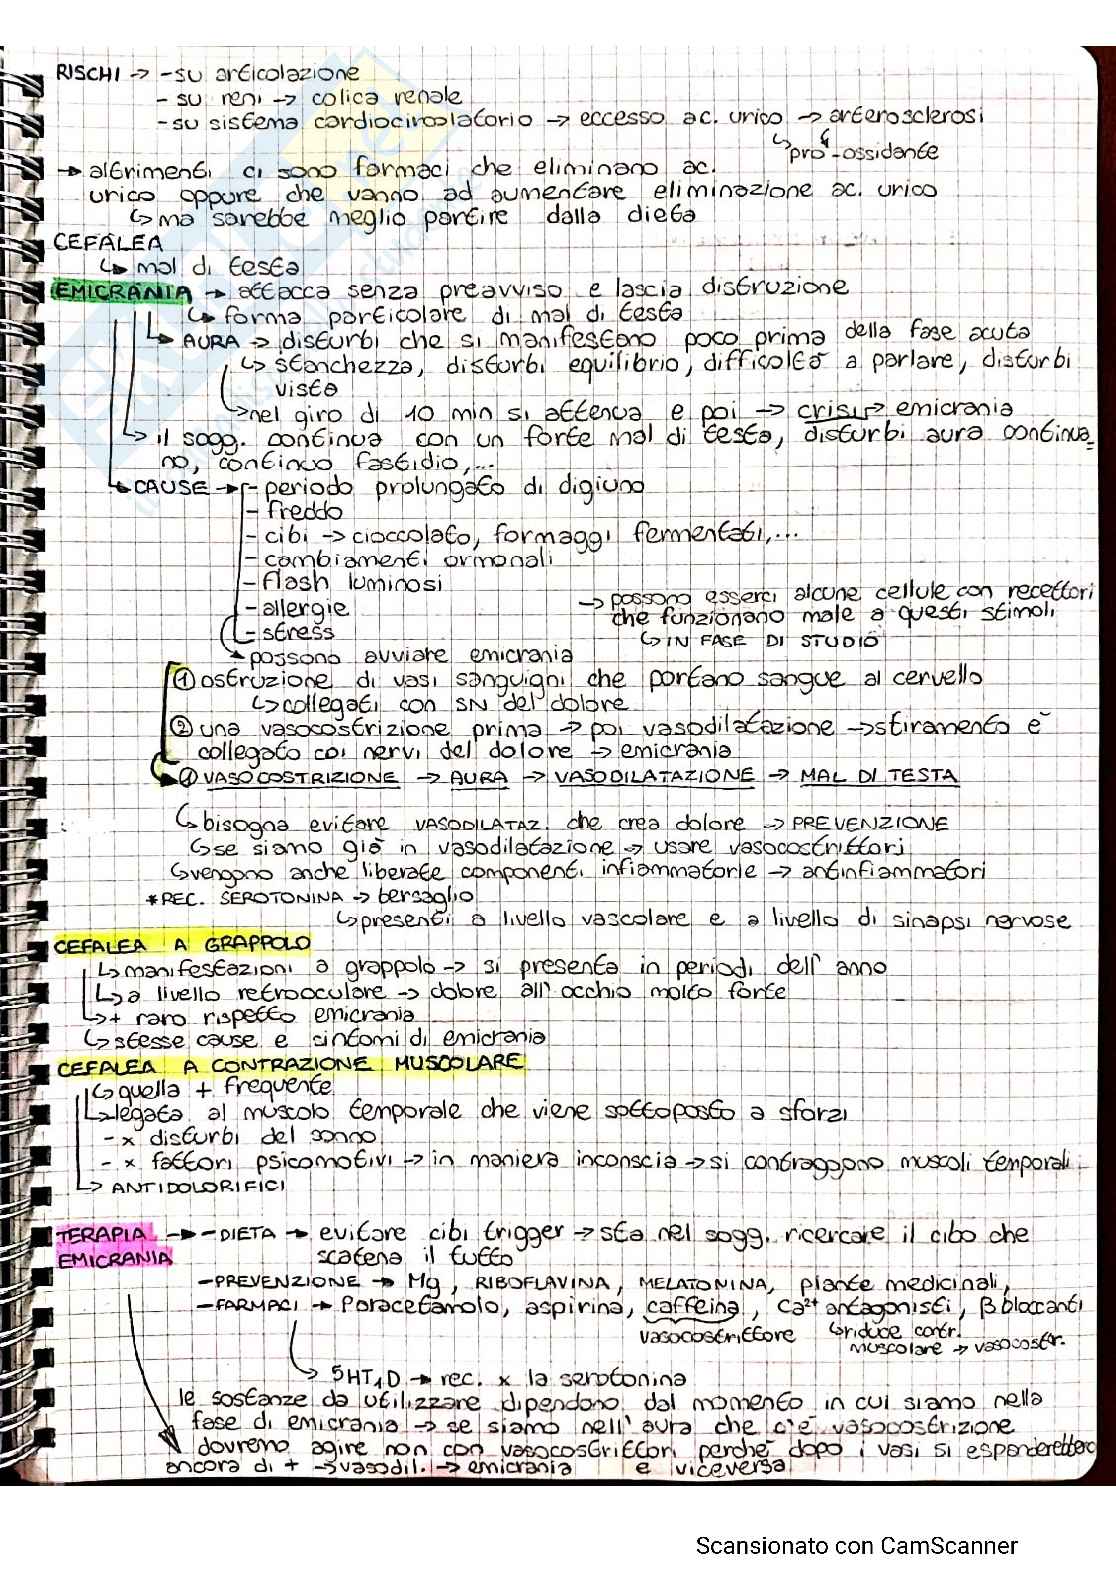 RISCHI → - su articolazione
- su reni → colica renale
- su sistema cardiocircolatorio → eccesso ac. urico → arterosclerosi
↳ pro-ossidante
→ altrimenti ci sono farmaci che eliminano ac.
urico oppure che vanno ad aumentare eliminazione ac. urico
↳ ma sarebbe meglio partire dalla dieta
CEFALEA
↳ mal di testa
EMICRANIA → attacca senza preavviso e lascia distruzione
↳ forma particolare di mal di testa
↳ AURA → disturbi che si manifestano poco prima della fase acuta
↳ stanchezza, disturbi equilibrio, difficoltà a parlare, disturbi
vista
↳ nel giro di 10 min si attenua e poi → crisi → emicrania
↳ il sogg. continua con un forte mal di testa, disturbi aura continua
no, continuo fastidio,...
↳ CAUSE → - periodo prolungato di digiuno
- freddo
- cibi → cioccolato, formaggi fermentati,...
- cambiamenti ormonali
- flash luminosi
- allergie
→ possono esserci alcune cellule con recettori
che funzionano male a questi stimoli
- stress
↳ IN FASE DI STUDIO
↳ possono avviare emicrania
① ostruzione di vasi sanguigni che portano sangue al cervello
↳ collegati con SN del dolore
② una vasocostrizione prima → poi vasodilatazione → stiramento è
collegato coi nervi del dolore → emicrania
VASOCOSTRIZIONE → AURA → VASODILATAZIONE → MAL DI TESTA
↳ bisogna evitare VASODILATAZ. che crea dolore → PREVENZIONE
↳ se siamo già in vasodilatazione → usare vasocostrittori
↳ vengono anche liberate componenti infiammatorie → antinfiammatori
* REC. SEROTONINA → bersaglio
↳ presenti a livello vascolare e a livello di sinapsi nervose
CEFALEA A GRAPPOLO
↳ manifestazioni a grappolo → si presenta in periodi dell'anno
↳ a livello retrooculare → dolore all'occhio molto forte
↳ + raro rispetto emicrania
↳ stesse cause e sintomi di emicrania
CEFALEA A CONTRAZIONE MUSCOLARE
↳ quella + frequente
↳ legata al muscolo temporale che viene sottoposto a sforzi
- x disturbi del sonno
- x fattori psicomotivi → in maniera inconscia → si contraggono muscoli temporali
↳ ANTIDOLORIFICI
TERAPIA → - DIETA → evitare cibi trigger → sta nel sogg. ricercare il cibo che
EMICRANIA scatena il tutto
- PREVENZIONE → Mg, RIBOFLAVINA, MELATONINA, piante medicinali,
- FARMACI → Paracetamolo, aspirina, caffeina, Ca²⁺ antagonisti, β bloccanti
vasocostrittore ↳ riduce contr.
muscolare → vasocostr.
↳ 5HT₁D → rec. x la serotonina
le sostanze da utilizzare dipendono dal momento in cui siamo nella
fase di emicrania → se siamo nell'aura che c'è vasocostrizione
dovremo agire non con vasocostrittori perchè dopo i vasi si espanderebbero
ancora di + → vasodil. → emicrania e viceversa
Scansionato con CamScanner